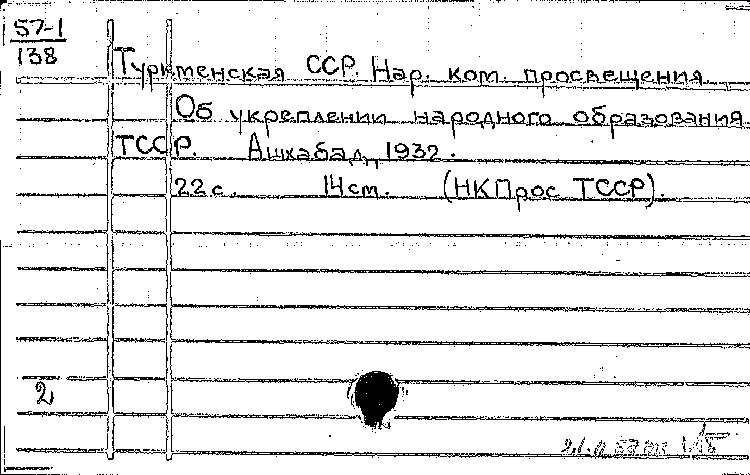 57-1
138
Туркменская ССР. Нар. ком. просвещения
Об укреплении народного образования
ТССР. Ашхабад, 1932.
22 с. 14 см. (НКПрос ТССР).
2